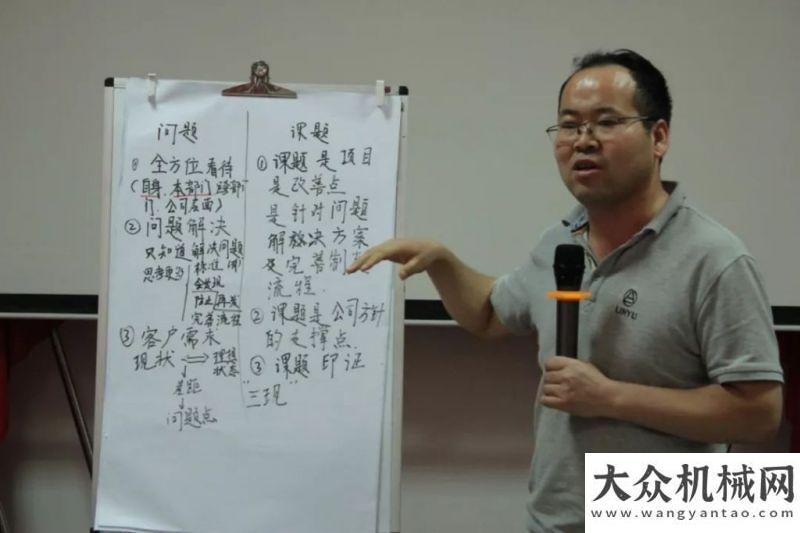 问题
① 全方位看待
(自身、本部门、跨部
门、公司层面)
② 问题解决
只知道 解决问题
思考要
再发
完善流程
③ 客户需求
现状 ⟺ 理想
状态
↓
差距
↓
问题点
课题
① 课题是项目
是改善点
是针对问题
解决方案
及完善制
流程.
② 课题是公司方针
的支撑点.
③ 课题印证
"三现"
LINYU
大众机械网
www.wangyantao.com